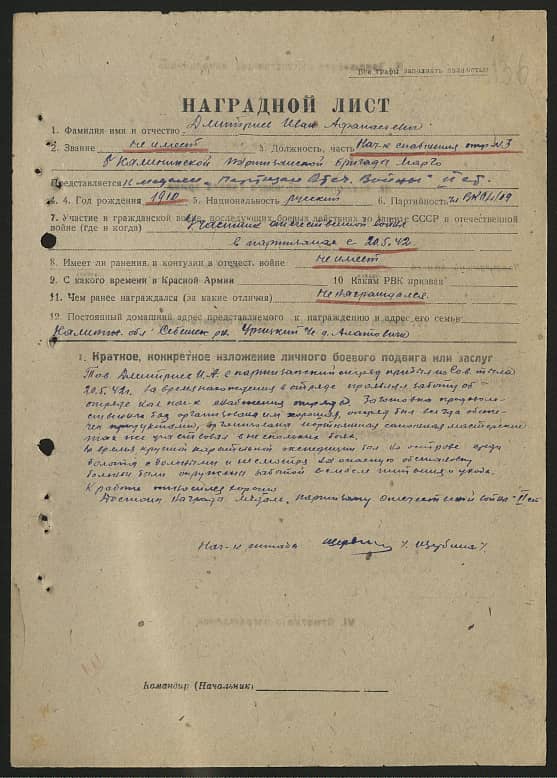 Все графы заполнять полностью
НАГРАДНОЙ ЛИСТ
1. Фамилия имя и отчество Дмитриев Иван Афанасьевич
2. Звание не имеет 3. Должность, часть Нач-к снабжения отр. №3
8 Калининской партизанской бригады Марго
Представляется к медали „Партизан Отеч. Войны" II ст.
4. Год рождения 1910 5. Национальность русский 6. Партийность
7. Участие в гражданской войне, последующих боевых действиях по защите СССР и отечественной
войне (где и когда) Участник отечественной войны
в партизанах с 20.5.42
8. Имеет ли ранения и контузии в отечест. войне не имеет
9. С какого времени в Красной Армии 10 Каким РВК призван
11. Чем ранее награждался (за какие отличия) не награждался.
12. Постоянный домашний адрес представляемого к награждению и адрес его семьи
Калинин. обл Себежск рн. Урицкий с/с д.
1. Краткое, конкретное изложение личного боевого подвига или заслуг
Тов. Дмитриев И.А. в партизанский отряд прибыл из Сов. тыла
20.5.42 г. За время нахождения в отряде проявлял заботу об
отряде как нач-к снабжения отряда. Заготовка продоволь-
ствия была организована им хорошая, отряд был всегда обеспе-
чен продуктами, организована портняжная сапожная мастерские
так же участвовал в нескольких боях.
Во время крупной карательной экспедиции был на острове среди
болота с больными и несмотря на опасную обстановку
больные были окружены заботой в смысле питания и ухода.
К работе относился хорошо
Достоин награды медаль „партизану отечественной войны" II ст
Нач-к штаба
Командир (Начальник)